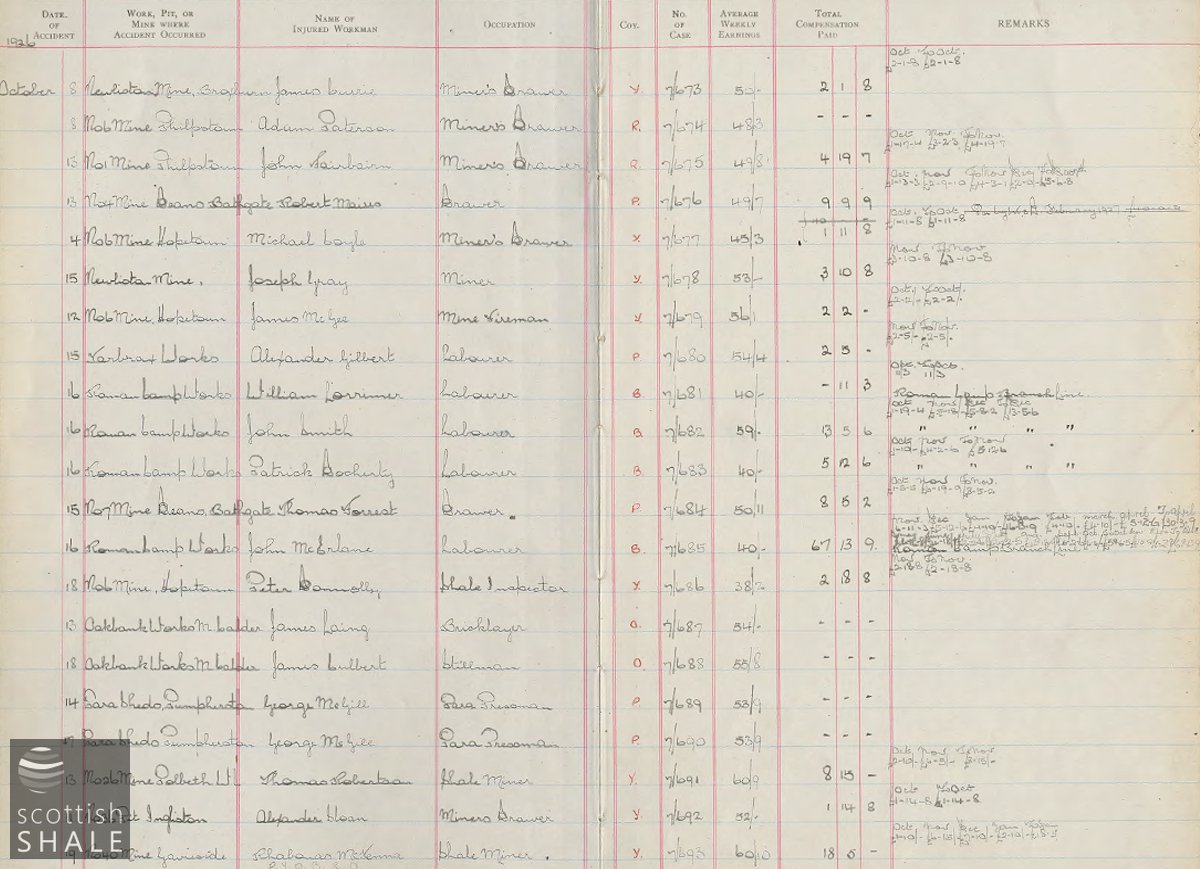 DATE. OF ACCIDENT WORK, PIT, OR MINE WHERE ACCIDENT OCCURRED NAME OF INJURED WORKMAN OCCUPATION COY. NO. OF CASE AVERAGE WEEKLY EARNINGS TOTAL COMPENSATION PAID REMARKS
1926
Oct. To Oct.
£2-1-8 £2-1-8
October 8 Newliston Mine, Broxburn James Currie Miner's Drawer Y. 7/673 50/- 2 1 8
8 No6 Mine Philpstoun Adam Paterson Miner's Drawer R. 7/674 48/3 - - -
Oct Nov To Nov.
£1-17-4 £3-2-3 £4-19-7
13 No1 Mine Philpstoun John Fairbairn Miner's Drawer R. 7/675 49/8 4 19 7
Oct. Nov To Nov Dec To Dec
13 No4 Mine Deans Bathgate Robert Mairs Drawer P. 7/676 49/7 9 9 9
Oct. To Oct.
£1-11-8 £1-11-8
4 No6 Mine Hopetoun Michael Coyle Miner's Drawer Y. 7/677 45/3 1 11 8
Nov To Nov
£3-10-8 £3-10-8
15 Newliston Mine. Joseph Gray Miner Y. 7/678 53/- 3 10 8
Oct. To Oct.
£2-2/- £2-2/-
12 No6 Mine, Hopetoun James McGee Mine Fireman Y. 7/679 56/1 2 2 -
Nov To Nov.
£2-5/- £2-5/-
15 Tarbrax Works Alexander Gilbert Labourer P. 7/680 54/4 2 5 -
Oct. To Oct.
11/3 11/3
16 Roman Camp Works William Lorrimer Labourer B. 7/681 40/- - 11 3 Roman Camp Branch Line
Oct Nov Dec To Dec
16 Roman Camp Works John Smith Labourer B. 7/682 59/- 13 5 6 " " " "
Oct Nov To Nov
16 Roman Camp Works Patrick Docherty Labourer B. 7/683 40/- 5 12 6 " " " "
Oct Nov To Nov.
15 No7 Mine Deans, Bathgate Thomas Forrest Drawer. P. 7/684 50/11 8 5 2
16 Roman Camp Works John McErlane Labourer B. 7/685 40/- 67 13 9.
Nov To Nov
£2-18-8 £2-18-8
18 No6 Mine, Hopetoun Peter Connolly Shale Inspector Y. 7/686 38/2 2 18 8
13 Oakbank Works M. Calder James Laing Bricklayer O. 7/687 54/- - - -
18 Oakbank Works M. Calder James Culbert Stillman O. 7/688 55/8 - - -
14 Para Sheds, Pumpherston George McGill Para Pressman P. 7/689 53/9 - - -
17 Para Sheds Pumpherston George McGill Para Pressman P. 7/690 53/9 - - -
Oct. Nov To Nov
£2-10/- £6-5/- £8-15/-
13 No26 Mine Polbeth Thomas Robertson Shale Miner Y. 7/691 60/9 8 15 -
Oct To Oct
£1-14-8 £1-14-8
Pit Ingliston Alexander Sloan Miners Drawer Y. 7/692 52/- 1 14 8
Oct. Nov Dec Jan To Jan
19 No40 Mine Gavieside McKenna Shale Miner. Y. 7/693 60/10 18 5 -
scottish
SHALE